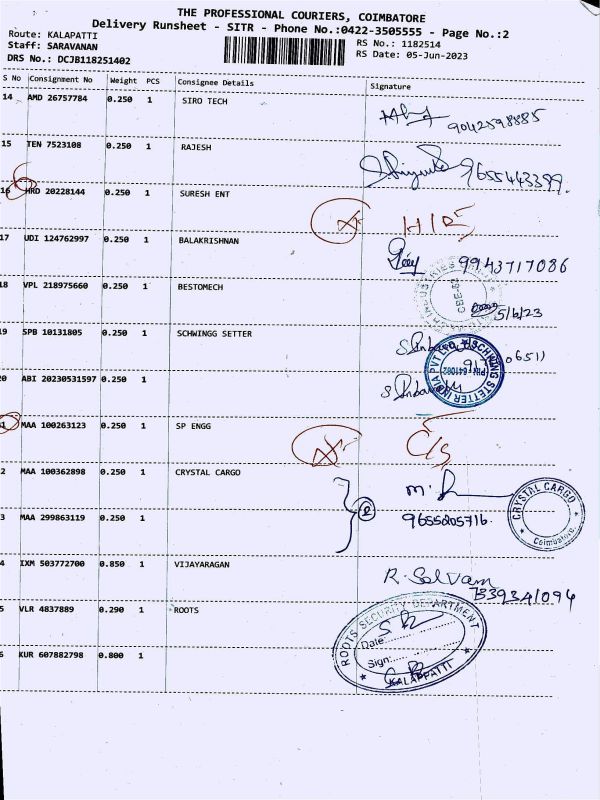 THE PROFESSIONAL COURIERS, COIMBATORE
Delivery Runsheet - SITR - Phone No.:0422-3505555 - Page No.:2
Route: KALAPATTI
Staff: SARAVANAN
DRS No.: DCJB118251402
RS No.: 1182514
RS Date: 05-Jun-2023
S No Consignment No Weight PCS Consignee Details Signature
14 AMD 26757784 0.250 1 SIRO TECH
9042598885
15 TEN 7523108 0.250 1 RAJESH
9655443399.
16 HRD 20228144 0.250 1 SURESH ENT
17 UDI 124762997 0.250 1 BALAKRISHNAN
9943717086
18 VPL 218975660 0.250 1 BESTOMECH
INDUSTRIES
CBE-62
5/6/23
19 SPB 10131805 0.250 1 SCHWINGG SETTER
06511
SCHWING STETTER INDIA PVT LTD
PIN-641062
20 ABI 20230531597 0.250 1
1 MAA 100263123 0.250 1 SP ENGG
C/S
2 MAA 100362898 0.250 1 CRYSTAL CARGO
M.
CRYSTAL CARGO
Coimbatore.
3 MAA 299863119 0.250 1
9655205716.
4 IXM 503772700 0.850 1 VIJAYARAGAN
R. Selvam
5 VLR 4837889 0.290 1 ROOTS
ROOTS SECURITY DEPARTMENT
Date
Sign.
KALAPPATTI
6 KUR 607882798 0.800 1